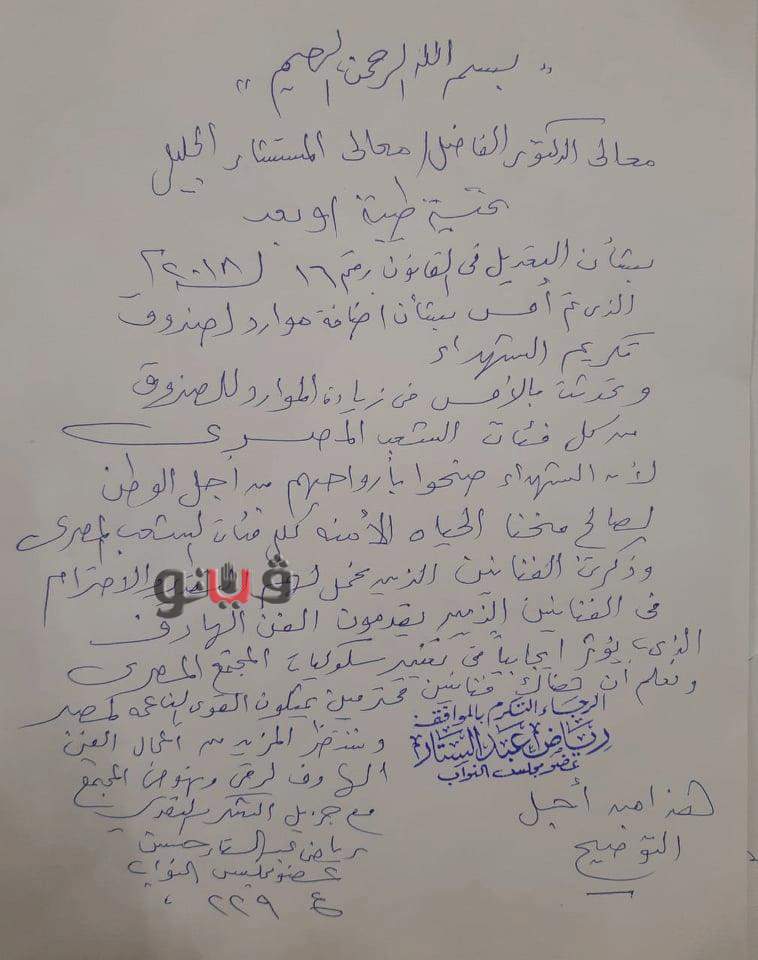 " بسم الله الرحمن الرحيم "
معالى الدكتور الفاضل / معالى المستشار الجليل
تحية طيبة وبعد
بشأن التعديل فى القانون رقم ١٦ لـ ٢٠١٨م
الذى تم أمس بشأن اضافة موارد لصندوق
تكريم الشهداء
وتحدثت بالأمس فى زيادة الموارد للصندوق
من كل فئات الشعب المصرى
لأن الشهداء ضحوا بأرواحهم من أجل الوطن
لصالح منحنا الحياه الأمنه كل فئات الشعب المصرى
وذكرت الفنانين الذين نحمل لهم والاحترام
فى الفنانين الذين يقدمون الفن الهادف
الذى يؤثر ايجابياً فى تغيير سلوكيات المجتمع المصرى
ونعلم أن هناك فنانين محترمين يمثلون القوى الناعمه لمصر
وننتظر المزيد من اعمال الفن
الهادف لرقى ونهوض المجتمع
مع جزيل الشكر والتقدير
رياض عبد الستار حسن
عضو مجلس النواب
٢٢٩
الرجاء التكرم بالموافقة
رياض عبد الستار
عضو مجلس النواب
هذا من أجل
التوضيح
ڤيتو